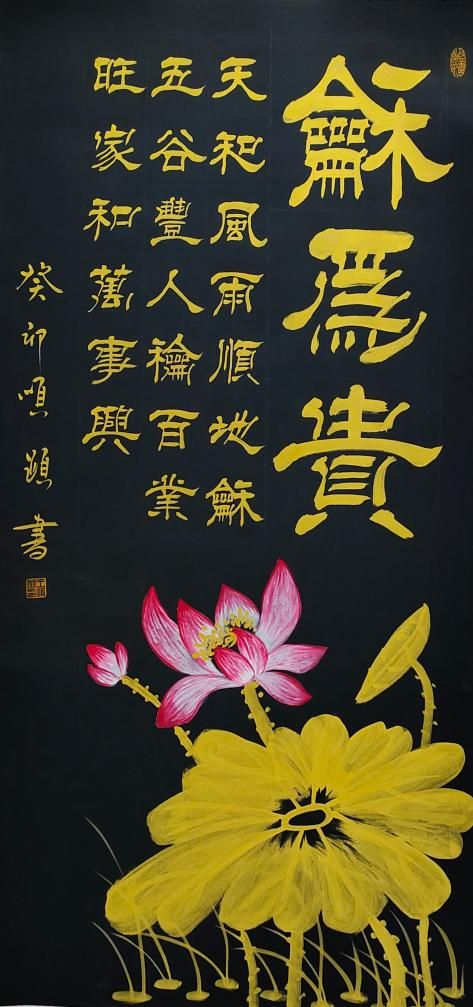 龢爲貴
天和風雨順地龢
五谷豐人龢百業
旺家和萬事興
癸卯書